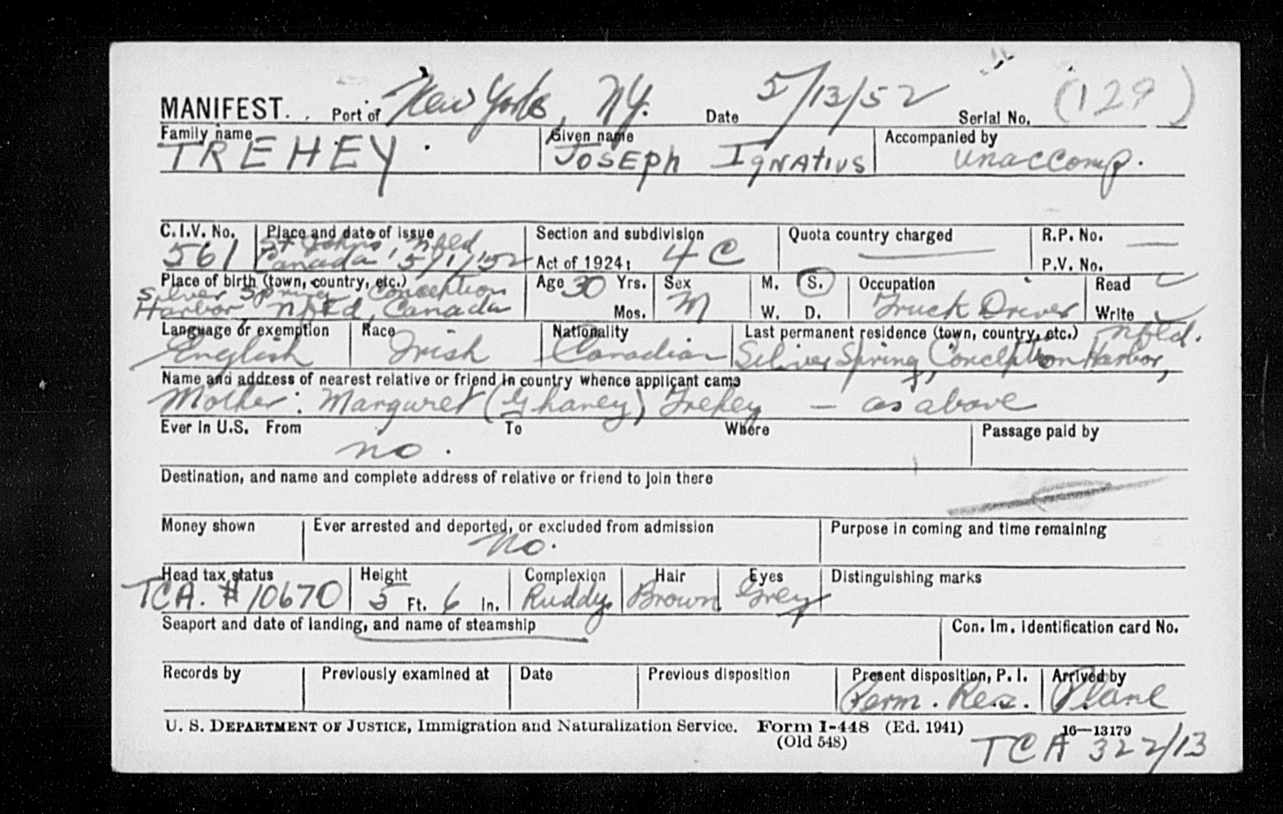 MANIFEST. . Port of New York, NY. Date 5/13/52 Serial No. (129)
Family name TREHEY. Given name JOSEPH IGNATIUS Accompanied by unaccomp.
C.I.V. No. 561 Place and date of issue St Johns, Nfld Canada 5/1/52 Section and subdivision Act of 1924; 4 C Quota country charged — R.P. No. —
P.V. No.
Place of birth (town, country, etc.) Silver Spring, Conception Harbor, Nfld, Canada Age 30 Yrs. Mos. Sex M M. S. W. D. Occupation Truck Driver Read
Write
Language or exemption English Race Irish Nationality Canadian Last permanent residence (town, country, etc.) Silver Spring, Conception Harbor, Nfld.
Name and address of nearest relative or friend in country whence applicant came
Mother: Margaret Trehey — as above
Ever in U.S. From no. To Where Passage paid by
Destination, and name and complete address of relative or friend to join there
Money shown Ever arrested and deported, or excluded from admission no. Purpose in coming and time remaining
Head tax status TCA. #10670 Height 5 Ft. 6 In. Complexion Ruddy Hair Brown Eyes Grey Distinguishing marks
Seaport and date of landing, and name of steamship Con. Im. identification card No.
Records by Previously examined at Date Previous disposition Present disposition, P. I. Perm. Res. Arrived by Plane
U. S. DEPARTMENT OF JUSTICE, Immigration and Naturalization Service. Form I-448 (Ed. 1941) 16—13179
(Old 548)
TCA 322/13